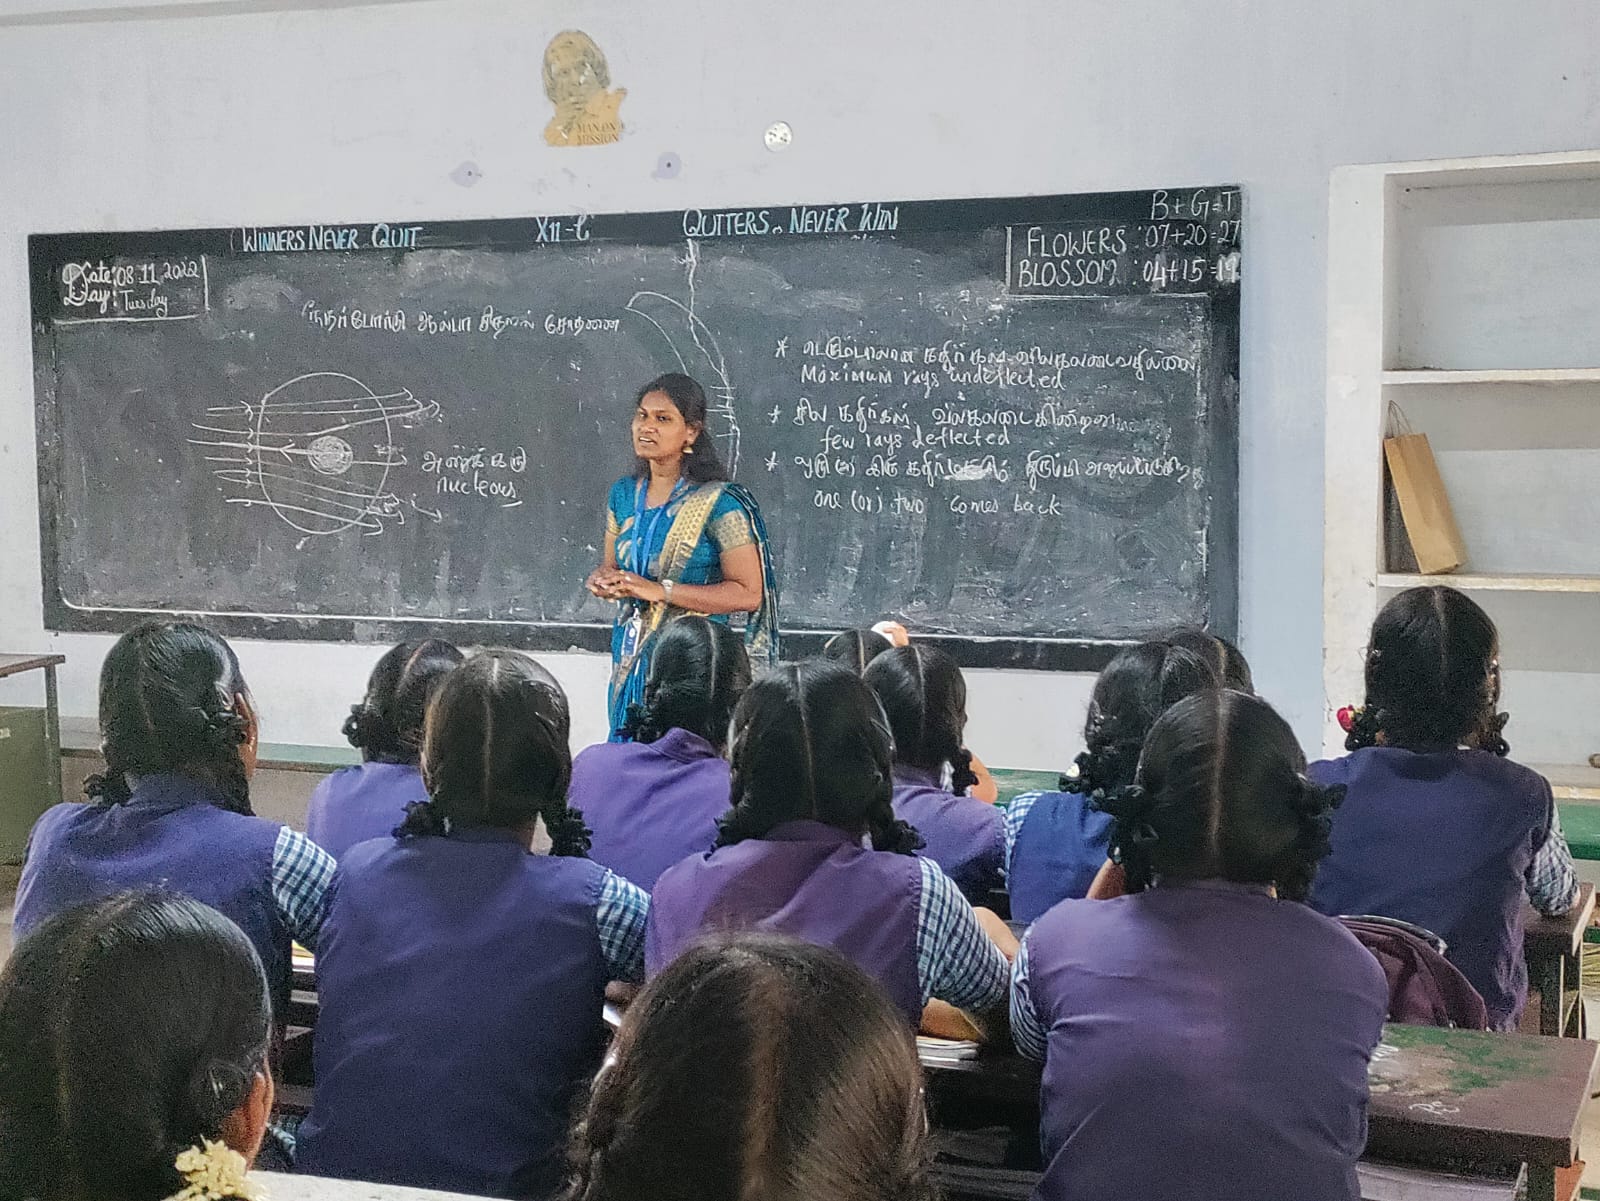 MAN ON
MISSION
WINNERS NEVER QUIT
X11-C
QUITTERS. NEVER WIN
B+G=T
FLOWERS : 07+20=27
BLOSSOM : 04+15=19
Date: 08.11.2022
Day: Tuesday
ஆல்பா சிதறல் சோதனை
அணுக்கரு
nucleous
* பெரும்பாலான கதிர்கள்
Maximum rays undeflected
* சில கதிர்கள்
few rays deflected
*
one (or) two comes back